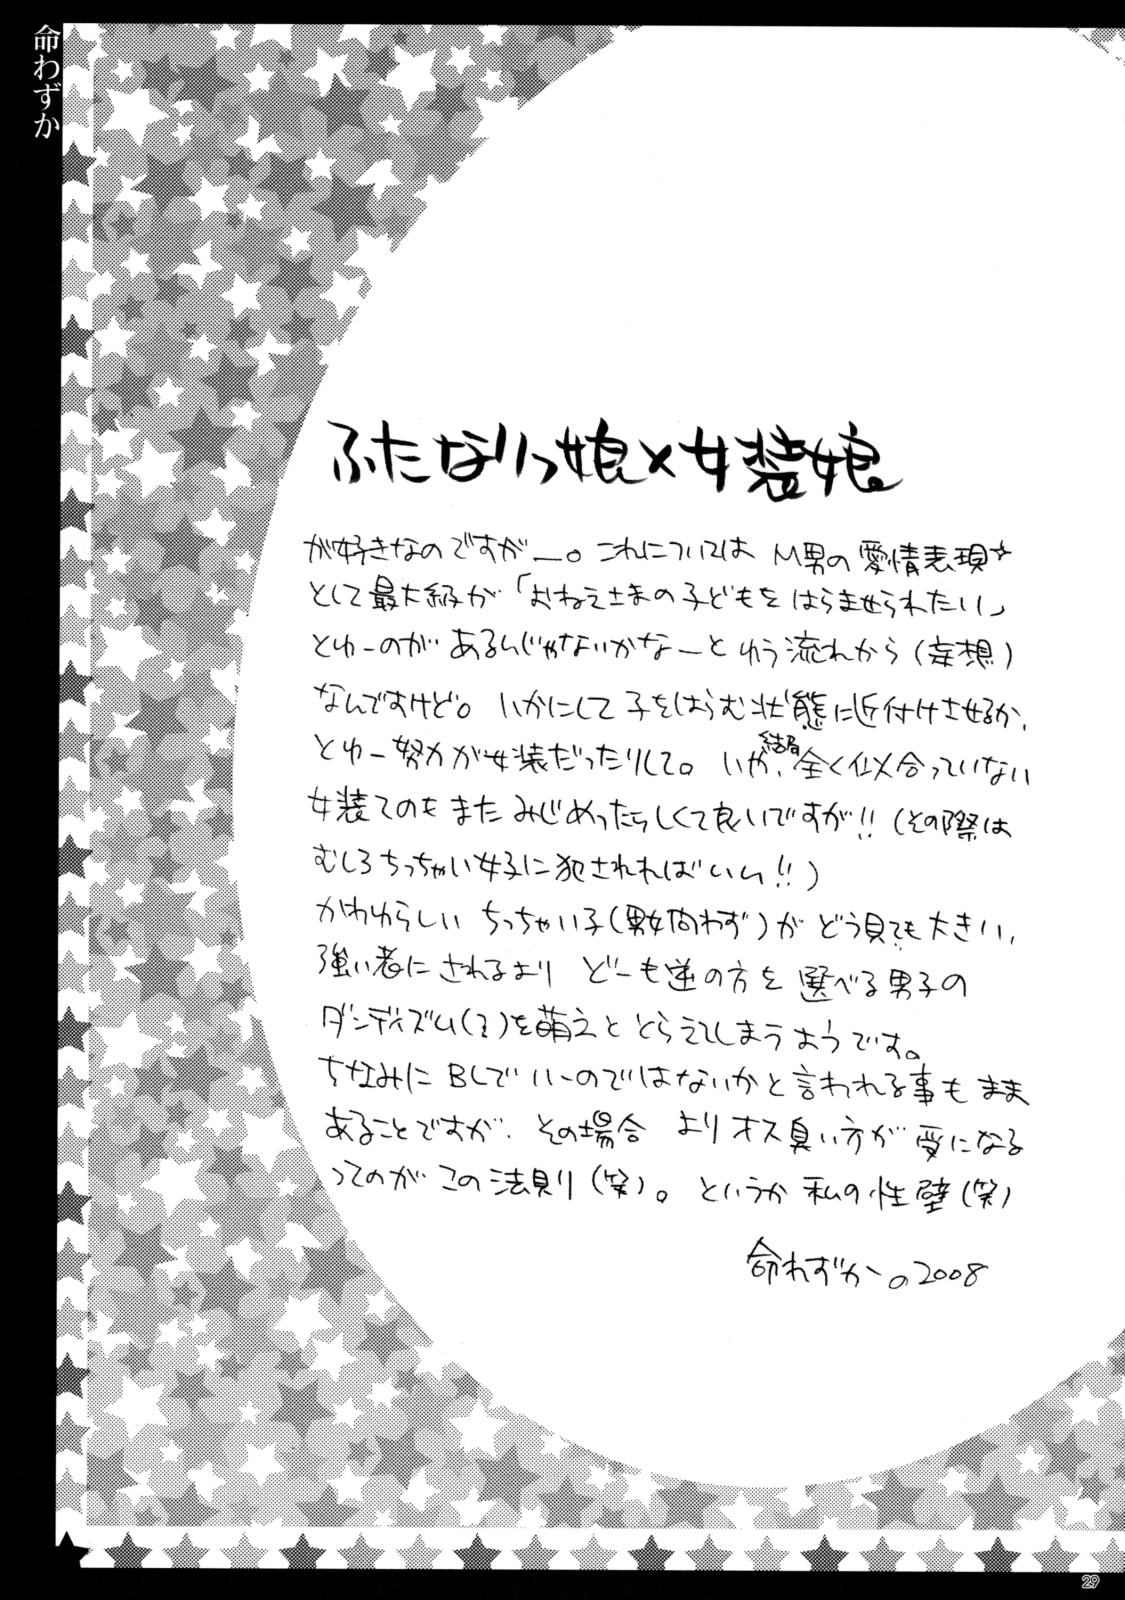 命わずか
ふたなりっ娘×女装娘
が好きなのですがー。これについては M男の愛情表現☆
として最大級が「おねえさまの子どもを はらませられたい」
とゆーのが あるんじゃないかなーと ゆう流れから(妄想)
なんですけど。いかにして 子をはらむ状態に近付けさせるか、
とゆー努力が女装だったりして。いや、結局全く似合っていない
女装てのも また みじめったらしくて良いですが!!(その際は
むしろちっちゃい女子に犯されればいい!!)
かわいらしい ちっちゃい子(男女問わず)が どう見ても大きい、
強い者に されるより どーも逆の方を 選べる男子の
ダンディズム(?)を萌えと とらえてしまう ようです。
ちなみに BLで いーのではないかと言われる事も まま
あることですが、その場合 よりオス臭い方が 受になる
ってのが この法則り(笑)。というか 私の性壁(笑)
命わずか の2008
29